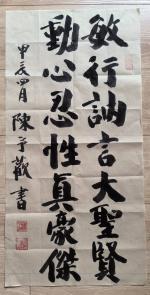 敏行訥言大聖賢
動心忍性真豪傑
甲辰四月 陳爭葳書